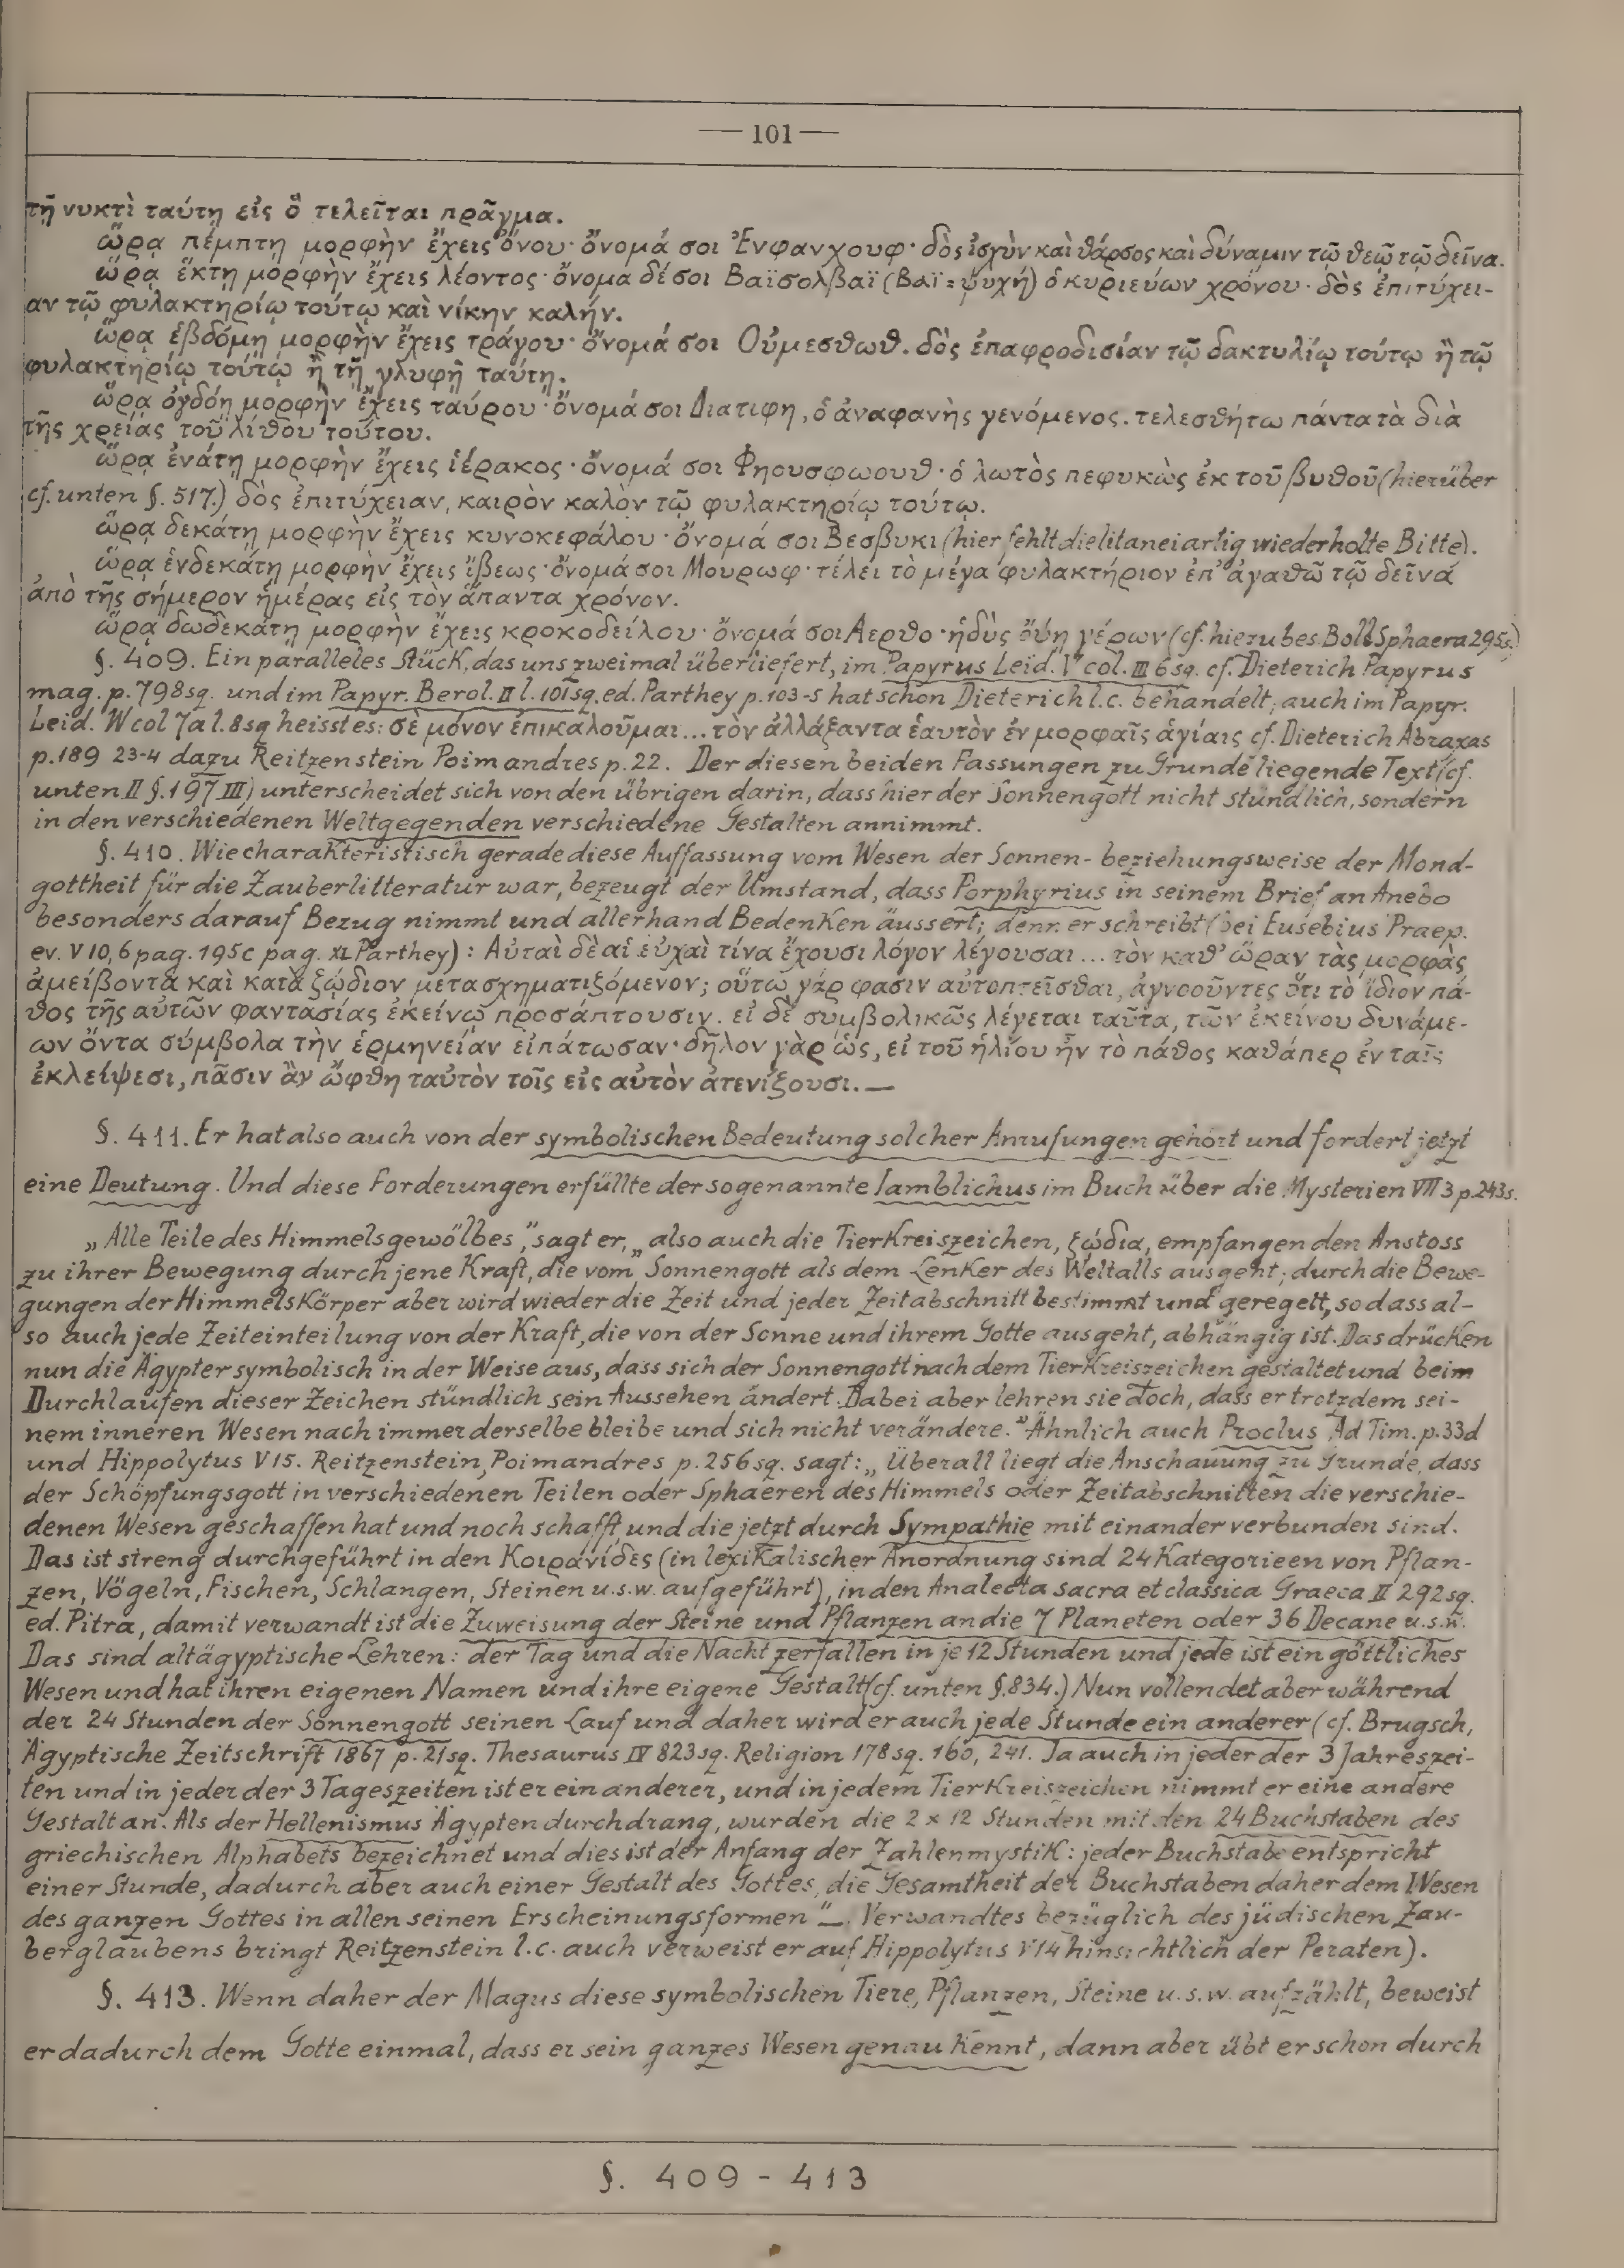 — 101 —
τῇ νυκτὶ ταύτῃ εἰς ὃ τελεῖται πρᾶγμα.
ὥρᾳ πέμπτῃ μορφὴν ἔχεις ὄνου· ὄνομά σοι Ἐνφανχουφ· δὸς ἰσχὺν καὶ θάρσος καὶ δύναμιν τῷ θεῷ τῷ δεῖνα.
ὥρᾳ ἕκτῃ μορφὴν ἔχεις λέοντος· ὄνομα δέ σοι Βαϊσολβαϊ (Βαϊ = ψυχή) ὁ κυριεύων χρόνου· δὸς ἐπιτύχει-
αν τῷ φυλακτηρίῳ τούτῳ καὶ νίκην καλήν.
ὥρᾳ ἑβδόμῃ μορφὴν ἔχεις τράγου· ὄνομά σοι Οὐμεσθωθ. δὸς ἐπαφροδισίαν τῷ δακτυλίῳ τούτῳ ἢ τῷ
φυλακτηρίῳ τούτῳ ἢ τῇ γλυφῇ ταύτῃ.
ὥρᾳ ὀγδόῃ μορφὴν ἔχεις ταύρου· ὄνομά σοι Διατιφη, ὁ ἀναφανὴς γενόμενος. τελεσθήτω πάντα τὰ διὰ
τῆς χρείας τοῦ λίθου τούτου.
ὥρᾳ ἐνάτῃ μορφὴν ἔχεις ἱέρακος· ὄνομά σοι Φηουσφωουθ· ὁ λωτὸς πεφυκὼς ἐκ τοῦ βυθοῦ (hierüber
cf. unten §. 517.) δὸς ἐπιτύχειαν, καιρὸν καλὸν τῷ φυλακτηρίῳ τούτῳ.
ὥρᾳ δεκάτῃ μορφὴν ἔχεις κυνοκεφάλου· ὄνομά σοι Βεσβυκι (hier fehlt die litaneiartig wiederholte Bitte).
ὥρᾳ ἑνδεκάτῃ μορφὴν ἔχεις ἴβεως· ὄνομά σοι Μουρωφ· τέλει τὸ μέγα φυλακτήριον ἐπ' ἀγαθῶ τῷ δεῖνά
ἀπὸ τῆς σήμερον ἡμέρας εἰς τὸν ἅπαντα χρόνον.
ὥρᾳ δωδεκάτῃ μορφὴν ἔχεις κροκοδείλου· ὄνομά σοι Αερθο· ἡδὺς ὄψη γέρων (cf. hiezu bes. Boll Sphaera 295s.)
§. 409. Ein paralleles Stück, das uns zweimal überliefert, im Papyrus Leid. V col. III 6 sq. cf. Dieterich Papyrus
mag. p. 798sq. und im Papyr. Berol. II l. 101sq. ed. Parthey p. 103-5 hat schon Dieterich l.c. behandelt; auch im Papyr.
Leid. W col 7a l. 8sq heisst es: σὲ μόνον ἐπικαλοῦμαι... τὸν ἀλλάξαντα ἑαυτὸν ἐν μορφαῖς ἁγίαις cf. Dieterich Abraxas
p. 189 23-4 dazu Reitzenstein Poimandres p. 22. Der diesen beiden Fassungen zu Grunde liegende Text (cf.
unten II §. 197 III) unterscheidet sich von den übrigen darin, dass hier der Sonnengott nicht stündlich, sondern
in den verschiedenen Weltgegenden verschiedene Gestalten annimmt.
§. 410. Wie charakteristisch gerade diese Auffassung vom Wesen der Sonnen- beziehungsweise der Mond-
gottheit für die Zauberlitteratur war, bezeugt der Umstand, dass Porphyrius in seinem Brief an Anebo
besonders darauf Bezug nimmt und allerhand Bedenken äussert; denn er schreibt (bei Eusebius Praep.
ev. V 10, 6 pag. 195c pag. XL Parthey): Αὐταὶ δὲ αἱ εὐχαὶ τίνα ἔχουσι λόγον λέγουσαι ... τὸν καθ' ὥραν τὰς μορφὰς
ἀμείβοντα καὶ κατὰ ζῴδιον μετασχηματιζόμενον; οὕτω γάρ φασιν αὐτοπτεῖσθαι, ἀγνοοῦντες ὅτι τὸ ἴδιον πά-
θος τῆς αὐτῶν φαντασίας ἐκείνῳ προσάπτουσιν. εἰ δὲ συμβολικῶς λέγεται ταῦτα, τῶν ἐκείνου δυνάμε-
ων ὄντα σύμβολα τὴν ἑρμηνείαν εἰπάτωσαν· δῆλον γὰρ ὡς, εἰ τοῦ ἡλίου ἦν τὸ πάθος καθάπερ ἐν ταῖς
ἐκλείψεσι, πᾶσιν ἂν ὤφθη ταὐτὸν τοῖς εἰς αὐτὸν ἀτενίζουσι. —
§. 411. Er hat also auch von der symbolischen Bedeutung solcher Anrufungen gehört und fordert jetzt
eine Deutung. Und diese Forderungen erfüllte der sogenannte Iamblichus im Buch über die Mysterien VII 3 p. 243s.
„Alle Teile des Himmelsgewölbes," sagt er, „also auch die Tierkreiszeichen, ζῴδια, empfangen den Anstoss
zu ihrer Bewegung durch jene Kraft, die vom Sonnengott als dem Lenker des Weltalls ausgeht; durch die Bewe-
gungen der Himmelskörper aber wird wieder die Zeit und jeder Zeitabschnitt bestimmt und geregelt, so dass al-
so auch jede Zeiteinteilung von der Kraft, die von der Sonne und ihrem Gotte ausgeht, abhängig ist. Das drücken
nun die Ägypter symbolisch in der Weise aus, dass sich der Sonnengott nach dem Tierkreiszeichen gestaltet und beim
Durchlaufen dieser Zeichen stündlich sein Aussehen ändert. Dabei aber lehren sie doch, dass er trotzdem sei-
nem inneren Wesen nach immer derselbe bleibe und sich nicht verändere." Ähnlich auch Proclus Ad Tim. p. 33d
und Hippolytus V 15. Reitzenstein, Poimandres p. 256sq. sagt: „Überall liegt die Anschauung zu Grunde, dass
der Schöpfungsgott in verschiedenen Teilen oder Sphaeren des Himmels oder Zeitabschnitten die verschie-
denen Wesen geschaffen hat und noch schafft und die jetzt durch Sympathie mit einander verbunden sind.
Das ist streng durchgeführt in den Κοιρανίδες (in lexikalischer Anordnung sind 24 Kategorieen von Pflan-
zen, Vögeln, Fischen, Schlangen, Steinen u.s.w. aufgeführt), in den Analecta sacra et classica Graeca II 292sq.
ed. Pitra, damit verwandt ist die Zuweisung der Steine und Pflanzen an die 7 Planeten oder 36 Decane u.s.w.
Das sind altägyptische Lehren: der Tag und die Nacht zerfallen in je 12 Stunden und jede ist ein göttliches
Wesen und hat ihren eigenen Namen und ihre eigene Gestalt (cf. unten §. 834.) Nun vollendet aber während
der 24 Stunden der Sonnengott seinen Lauf und daher wird er auch jede Stunde ein anderer (cf. Brugsch,
Ägyptische Zeitschrift 1867 p. 21sq. Thesaurus IV 823sq. Religion 178sq. 160, 241. Ja auch in jeder der 3 Jahreszei-
ten und in jeder der 3 Tageszeiten ist er ein anderer, und in jedem Tierkreiszeichen nimmt er eine andere
Gestalt an. Als der Hellenismus Ägypten durchdrang, wurden die 2 x 12 Stunden mit den 24 Buchstaben des
griechischen Alphabets bezeichnet und dies ist der Anfang der Zahlenmystik: jeder Buchstabe entspricht
einer Stunde, dadurch aber auch einer Gestalt des Gottes, die Gesamtheit der Buchstaben daher dem Wesen
des ganzen Gottes in allen seinen Erscheinungsformen" —. Verwandtes bezüglich des jüdischen Zau-
berglaubens bringt Reitzenstein l.c. auch verweist er auf Hippolytus V 14 hinsichtlich der Peraten).
§. 413. Wenn daher der Magus diese symbolischen Tiere, Pflanzen, Steine u.s.w. aufzählt, beweist
er dadurch dem Gotte einmal, dass er sein ganzes Wesen genau kennt, dann aber übt er schon durch
§. 409 - 413